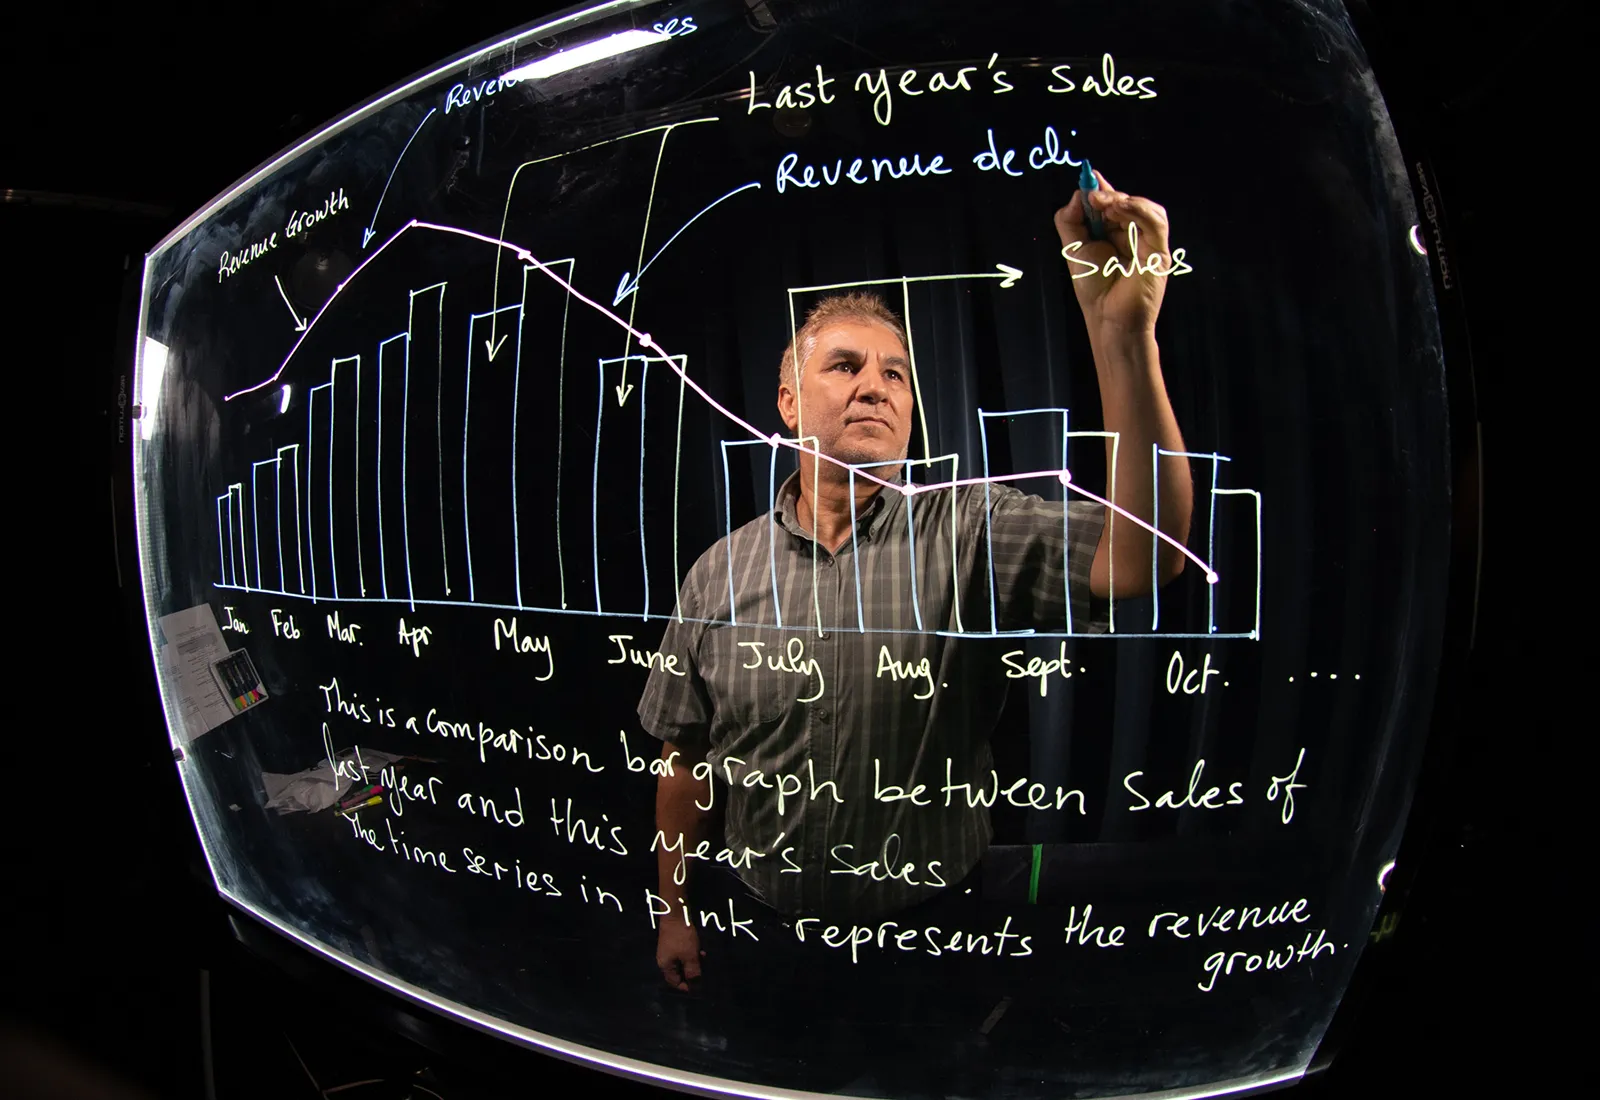 Last year's Sales
Revenue decli
Revenue Growth
Sales
Jan Feb Mar. Apr May June July Aug. Sept. Oct. ....
This is a comparison bar graph between Sales of
last year and this year's Sales.
The time series in pink represents the revenue
growth.